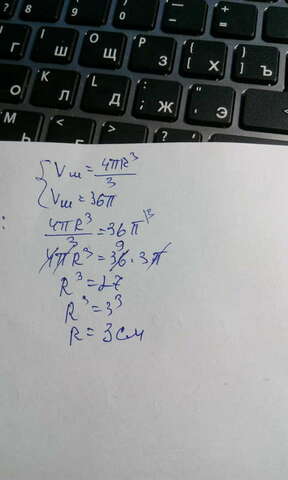 8 9 0
Г Ш Щ З Х Ъ
О Л Д Ж Э
{ Vш = 4πR³/3
Vш = 36π
4πR³/3 = 36π |3
4πR³ = 36 9 · 3π
R³ = 27
R³ = 3³
R = 3 см